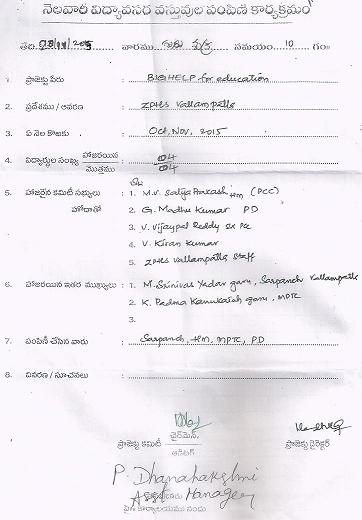 నెలవారీ విద్యావసర వస్తువుల పంపిణీ కార్యక్రమం
తేది: వారము సమయం 10 గం॥
1. ప్రాజెక్టు పేరు : BIGHELP for education
2. ప్రదేశము / ఆవరణ : ZPHS Vallampatla
3. ఏ నెల కొఱకు : Oct, Nov, 2015
4. విద్యార్థుల సంఖ్య హాజరయిన : 04
మొత్తము 04
5. హాజరైన కమిటీ సభ్యులు : 1. M.V. Satya Prakash HM (PCC)
హోదాతో 2. G. Madhu Kumar PD
3. V. Vijaypal Reddy
4. V. Kiran Kumar
5. ZPHS Vallampatla Staff
6. హాజరయిన ఇతర ముఖ్యులు : 1. M. Srinivas Yadav garu, Sarpanch Vallampatla
2. K. Padma Kanukaiah garu, MPTC
3.
7. పంపిణీ చేసిన వారు : Sarpanch, HM, MPTC, PD
8. వివరణ / సూచనలు :
ప్రాజెక్టు కమిటీ ఛైర్మెన్, ప్రాజెక్టు డైరెక్టర్
ఆడిటర్
P. Dhanalakshmi
Asst Manager